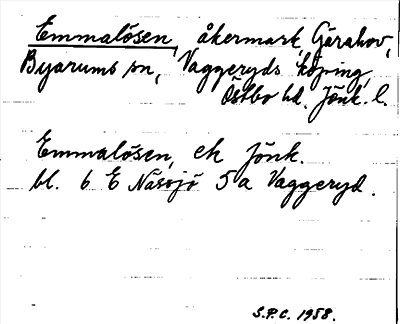 Emmalösen, åkermark, Gärahov,
Byarums sn, Vaggeryds köping,
Östbo hd. Jönk. l.
Emmalösen, ek Jönk.
bl. 6 E Nässjö 5 a Vaggeryd.
S.P.C. 1958.